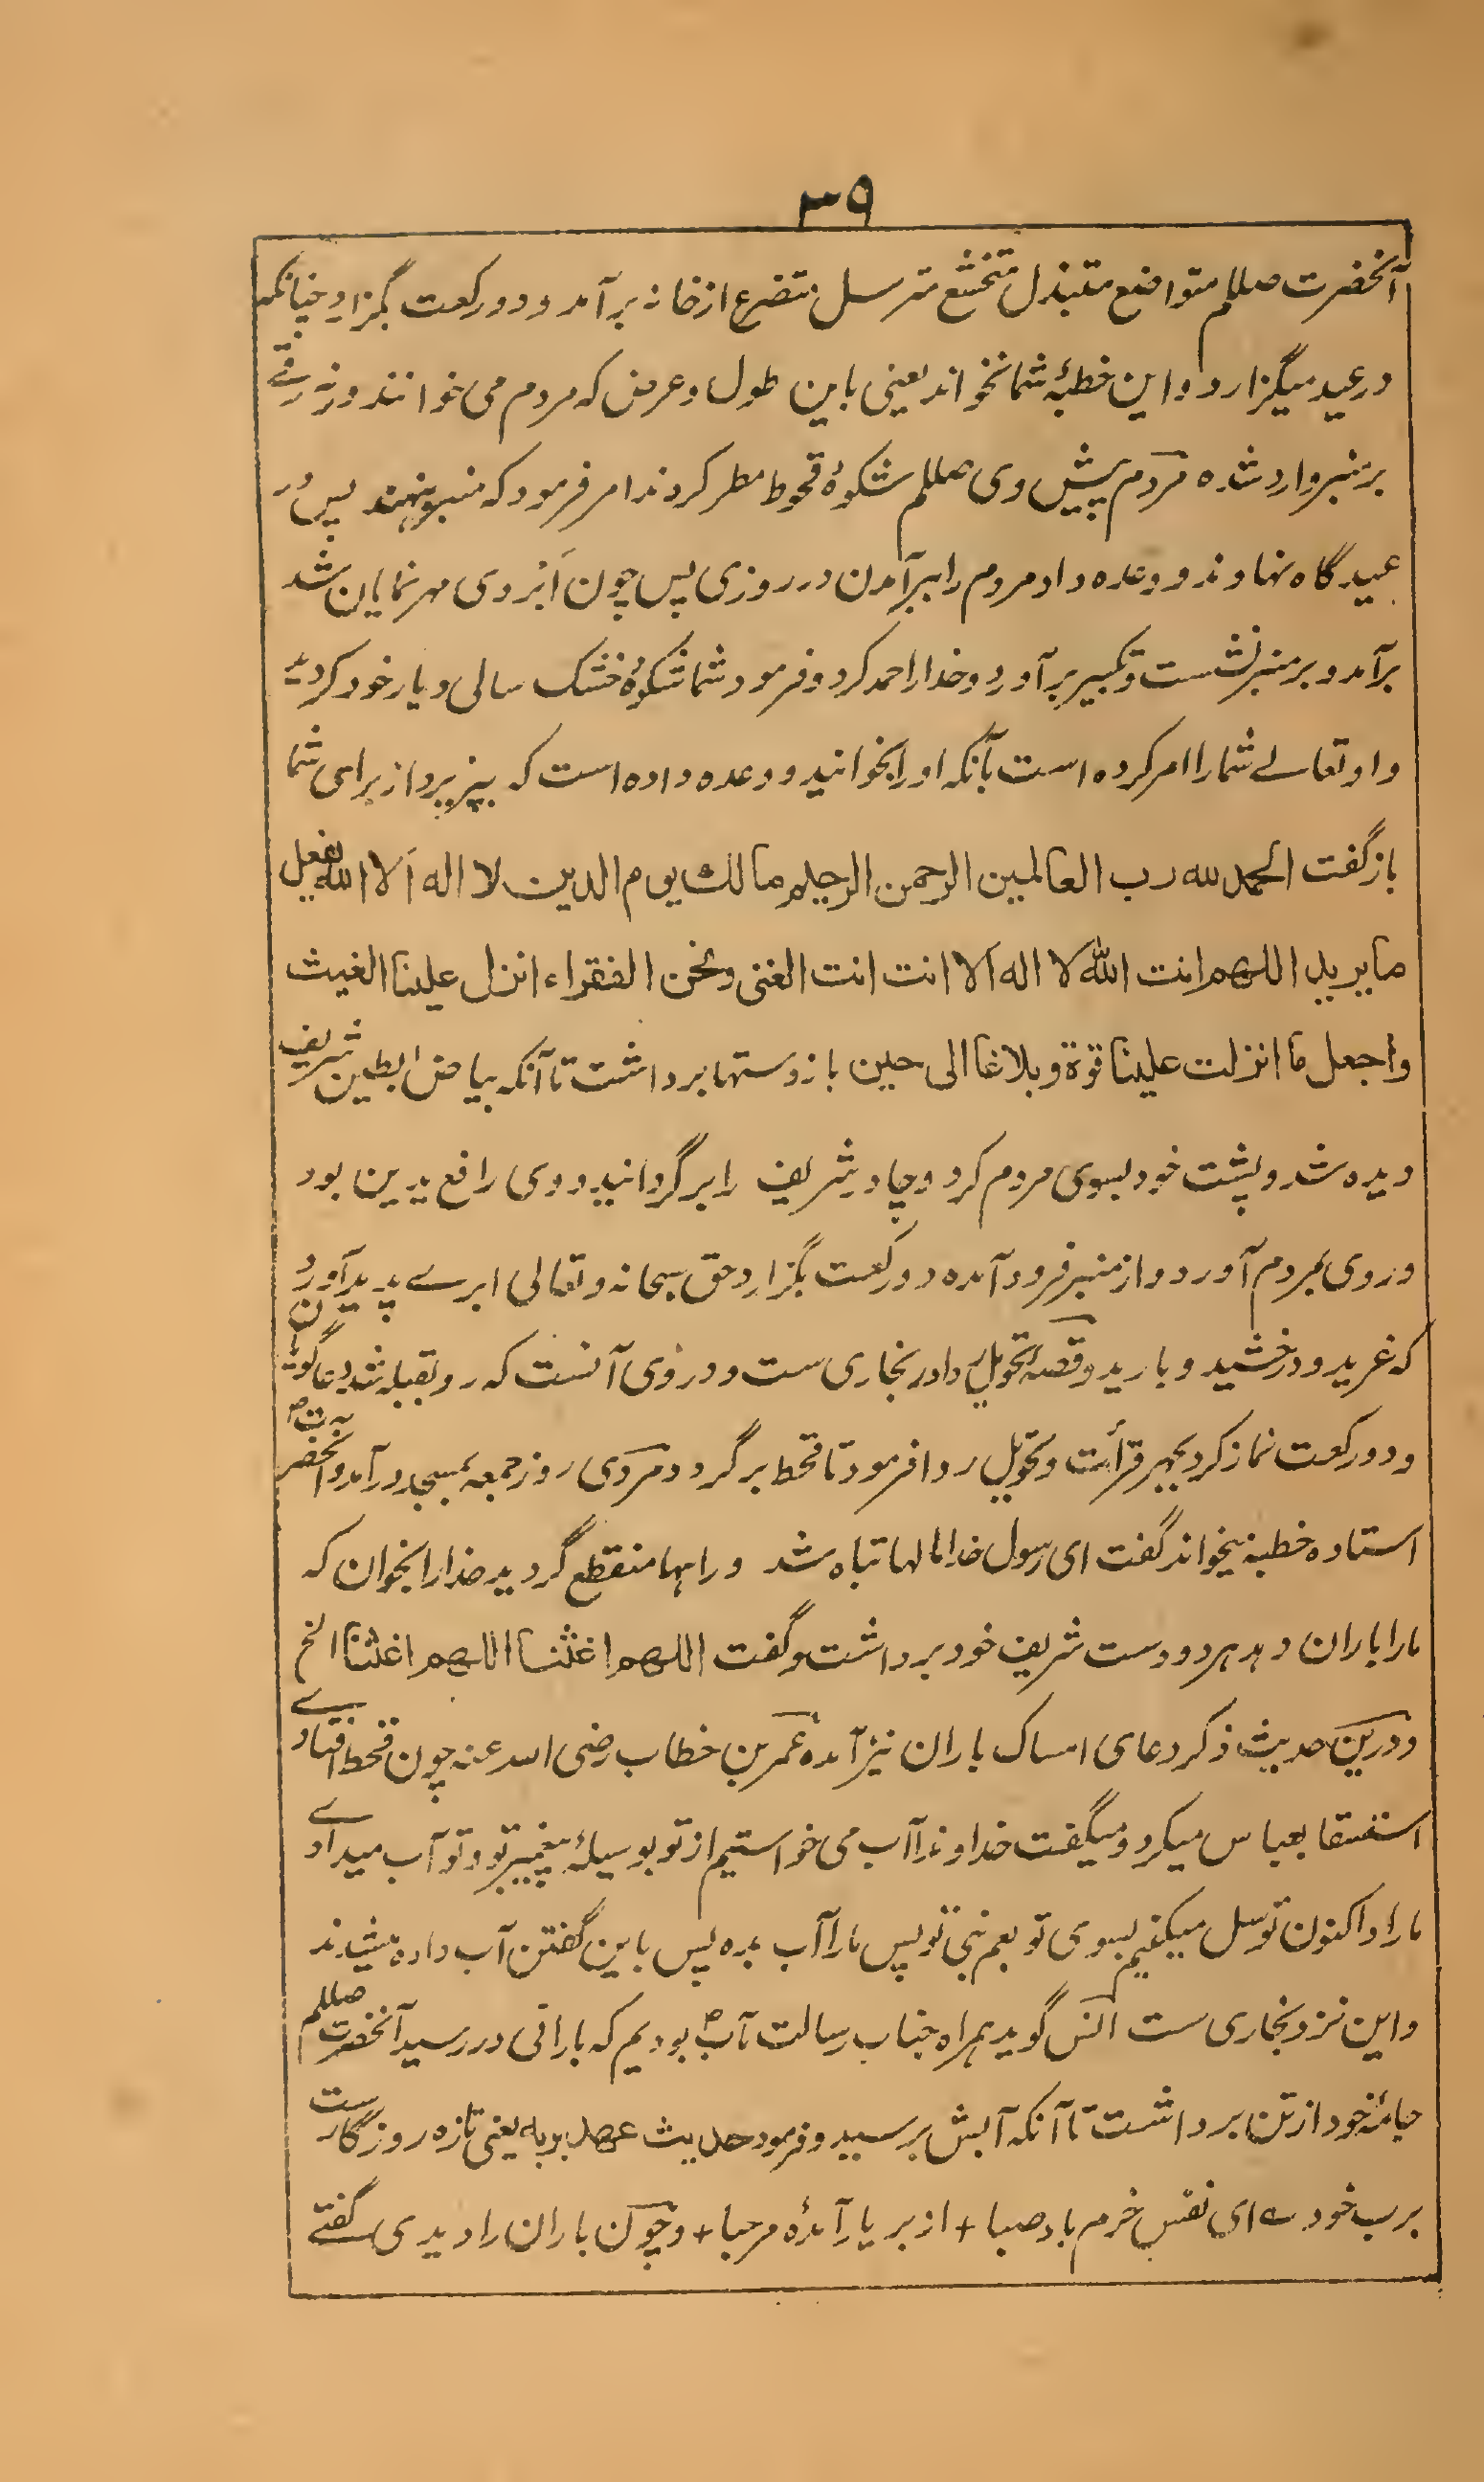 ۳۹
آنحضرت صللم متواضع متبذل متخشع مترسل متضرع از خانه برآمد و دو رکعت بگزارد چنانکه
در عید میگزارد و این خطبهٔ شما نخواند یعنی باین طول و عرض که مردم می خوانند و نه رقے
بر منبر وارد شده مردم پیش وی صللم شکوهٔ قحوط مطر کردند امر فرمود که منبر بنهند پس در
عیدگاه نهادند و وعده داد مردم را ببرآمدن در روزی پس چون ابروی مهر نمایان شد
برآمد و بر منبر نشست و تکبیر برآورد و خدا را حمد کرد و فرمود شما شکوهٔ خشک سالی دیار خود کردید
و او تعالے شما را امر کرده است بآنکه او را بخوانید و وعده داده است که بپذیرد از برای شما
باز گفت الحمد لله رب العالمین الرحمن الرحیم مالک یوم الدین لا اله الا الله یفعل
ما یرید اللهم انت الله لا اله الا انت انت الغنی ونحن الفقراء انزل علینا الغیث
واجعل ما انزلت علینا قوة وبلاغا الی حین باز دستها برداشت تا آنکه بیاض ابطین شریف
دیده شد و پشت خود بسوی مردم کرد و چادر شریف را برگردانید و وی رافع یدین بود
و روی بمردم آورد و از منبر فرود آمده دو رکعت بگزارد حق سبحانه و تعالی ابرے پدید آورد
که غرید و درخشید و بارید و قصهٔ تحویل ردا در بخاری ست و در وی آنست که رو بقبله شد دعا گویان
و دو رکعت نماز کرد بجهر قرأت و تحویل ردا فرمود تا قحط برگردد مردی روز جمعه بمسجد درآمد و آنحضرت ص
استاده خطبه میخواند گفت ای رسول خدا مالها تباه شد و راهها منقطع گردید خدا را بخوان که
ما را باران دهد هر دو دست شریف خود برداشت و گفت اللهم اغثنا اللهم اغثنا الخ
و درین حدیث ذکر دعای امساک باران نیز آمده عمر بن خطاب رضی الله عنه چون قحط افتادے
استسقا بعباس میکرد و میگفت خداوندا آب می خواستیم از تو بوسیلهٔ پیغمبر تو و تو آب میدادے
ما را و اکنون توسل میکنیم بسوی تو بعم نبی تو پس ما را آب بده پس باین گفتن آب داده میشدند
و این نزد بخاری ست انس گوید همراه جناب رسالت مآب ص بودیم که بارانی در رسید آنحضرت صللم
جامهٔ خود از تن برداشت تا آنکه آبش برسید و فرمود حدیث عهد بربه یعنی تازه روزگار ست
برب خود ے ای نفس خرم باد صبا + از بر یار آمدهٔ مرحبا + و چون باران را دیدی گفتے